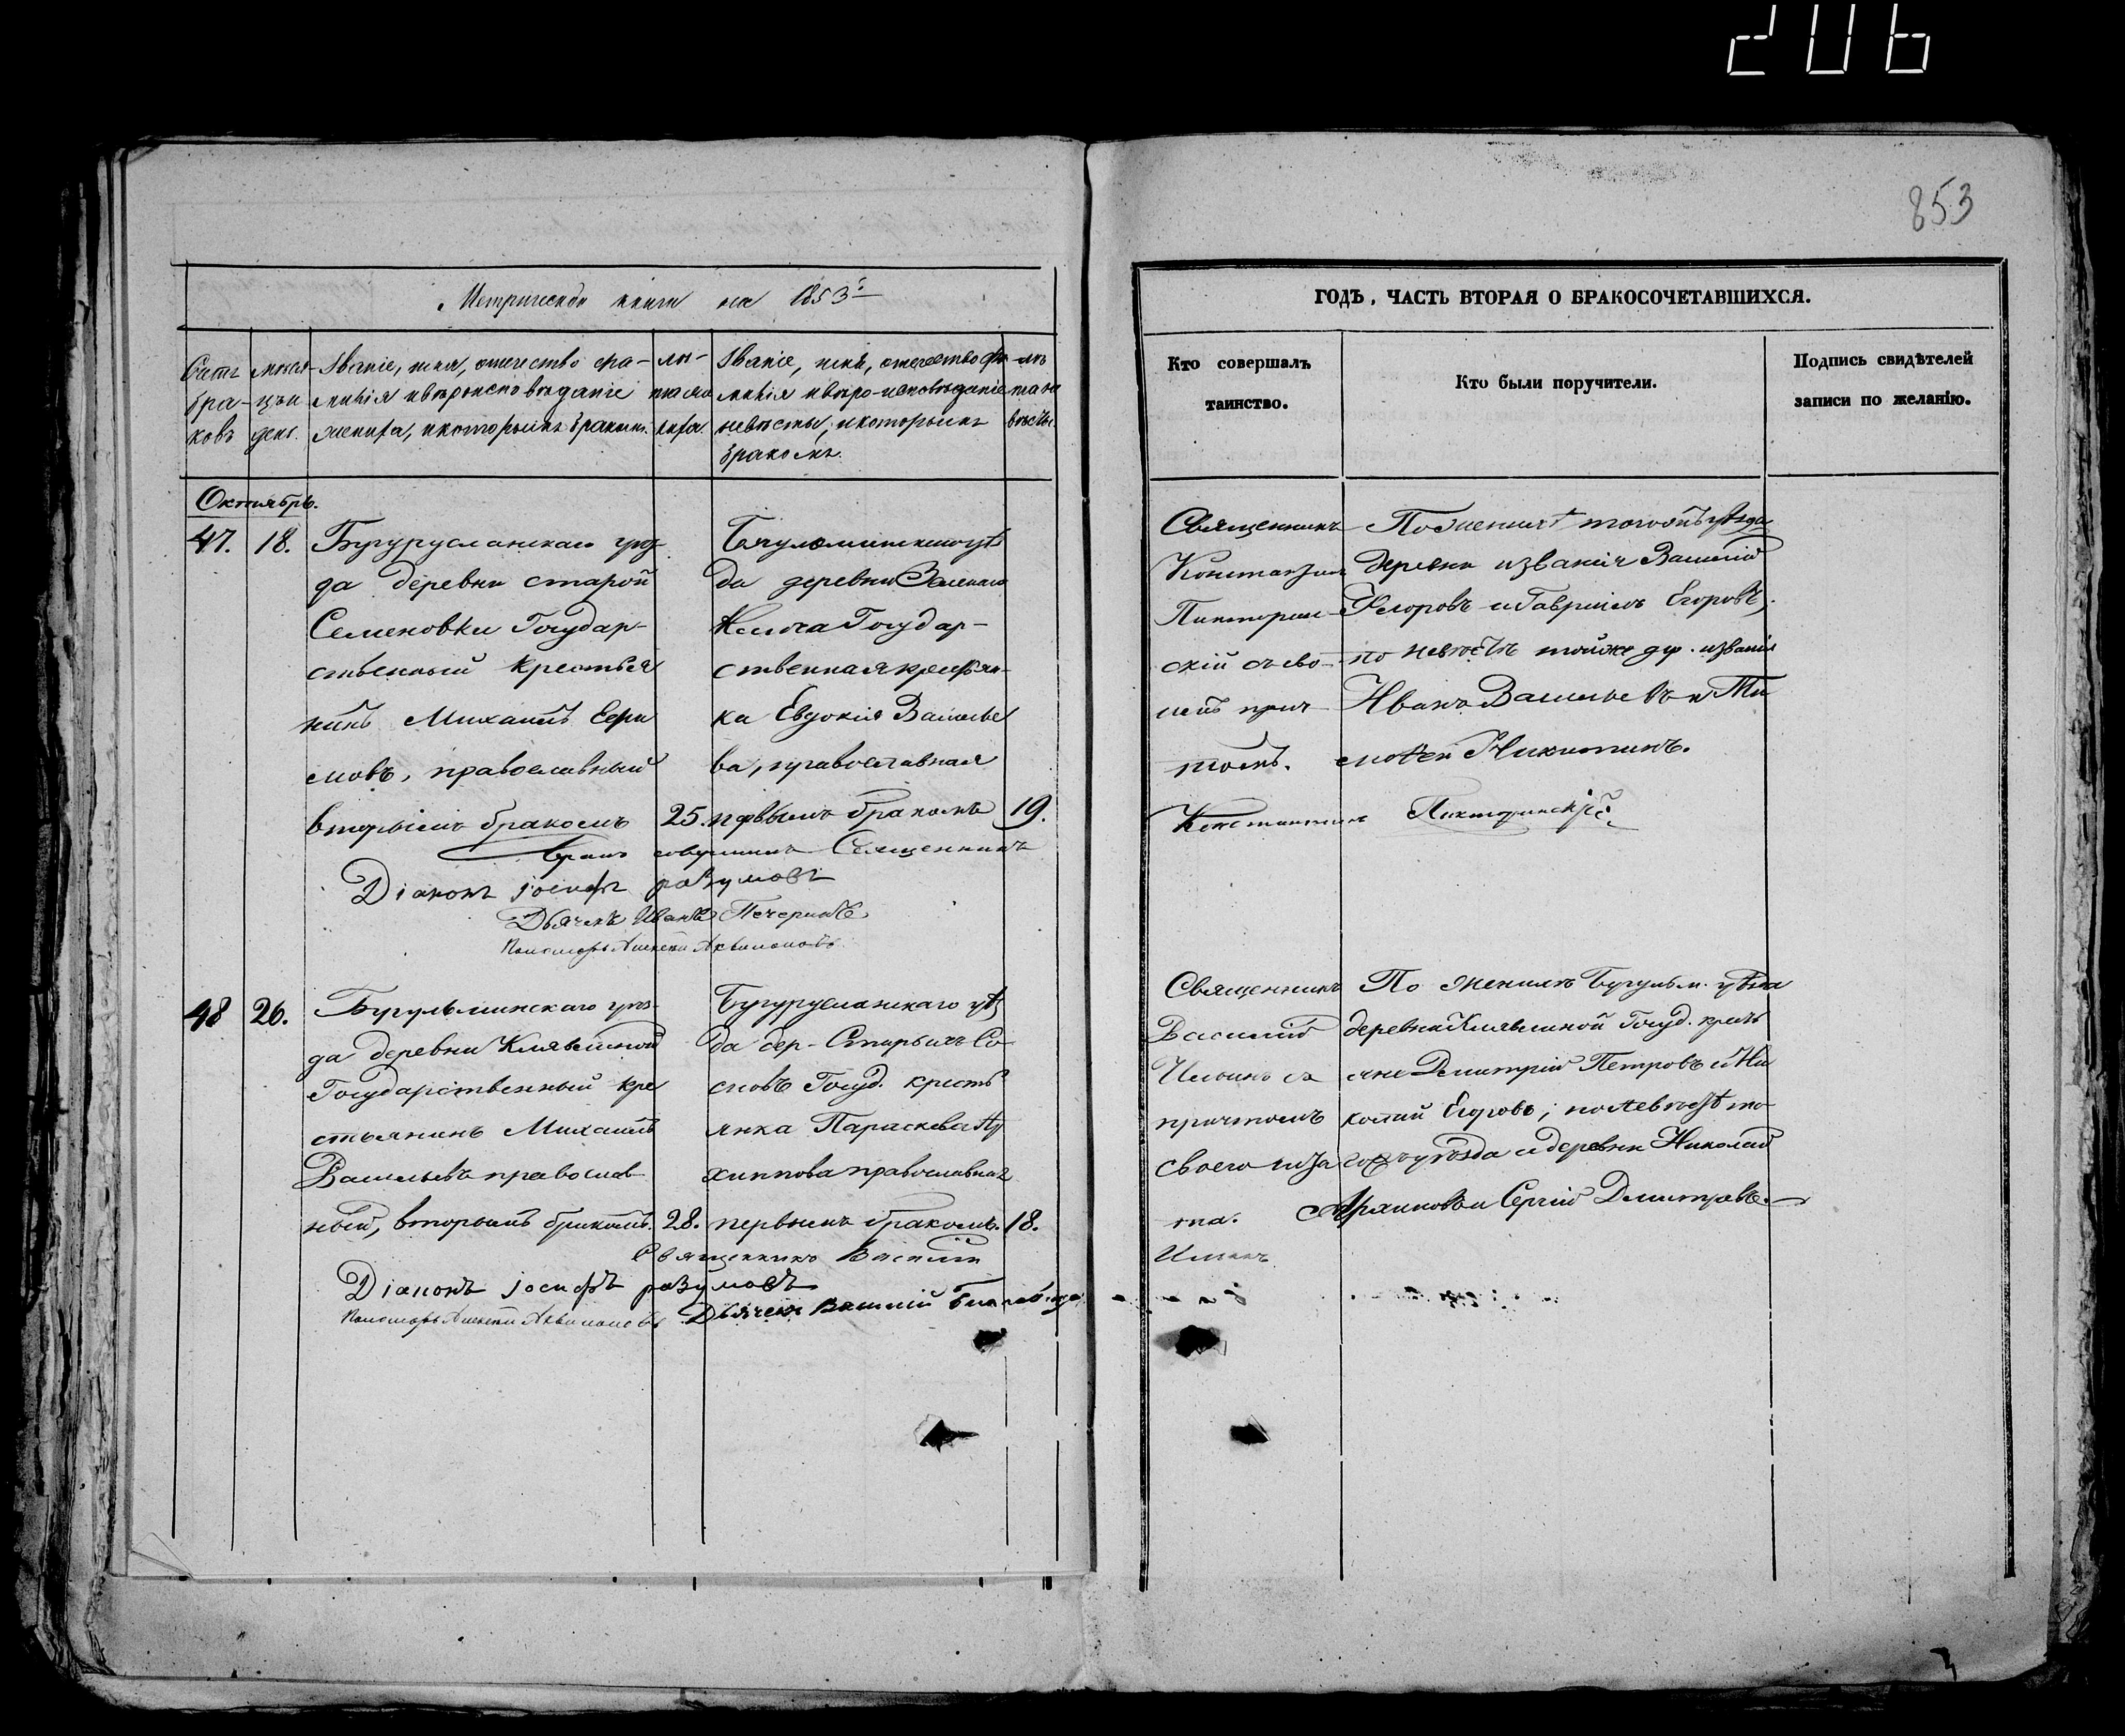 206
853
Метрической книги на 1853й
ГОДЪ, ЧАСТЬ ВТОРАЯ О БРАКОСОЧЕТАВШИХСЯ.
Счетъ бра-ковъ
мѣсяцъ и день.
Званіе, имя, отечество фа-
милія и вѣроисповѣданіе
жениха, и которымъ бракомъ.
лѣ-
та же
ниха.
Званіе, имя, отечество фа
милія и вѣро-исповѣданіе
невѣсты, и которымъ
бракомъ.
лѣ
та не
вѣсты.
Кто совершалъ
таинство.
Кто были поручители.
Подпись свидѣтелей
записи по желанію.
Октябрь.
47. 18.
Бугурусланскаго уѣз
да деревни старой
Семеновки Государ-
ственный крестья
нинъ Михаилъ Ефи
мовъ, православный
вторымъ бракомъ
25.
да деревни
Государ-
ственная крестьян-
ка Евдокія Василье
ва, православная
первымъ бракомъ
19.
Священникъ
Константинъ
скій съ сво-
имъ прич
томъ.
По женихѣ тогожъ уѣзда
деревни и званія Василій
Ѳедоровъ и Гавріилъ Егоровъ,
по невѣстѣ тойже дер. и званія
Иванъ Васильевъ и Ти
моѳей Никитинъ.
бракъ совершилъ Священникъ
Константинъ
Діаконъ Іосифъ Разумовъ
Дьячекъ Иванъ Печеринъ
Пономарь Алексѣй
48 26.
Бугульминскаго уѣз-
да деревни Клявлиной
Государственный кре
стьянинъ Михаилъ
Васильевъ православ
ный, вторымъ бракомъ.
28.
Бугурусланскаго уѣз
да дер. Старыхъ Со
сновъ Госуд. кресть
янка Параскева Ар
хиппова православная
первымъ бракомъ.
18.
Священникъ
Василій
Ильинъ съ
причтомъ
своего
По женихѣ Бугульм. уѣзда
деревни Клявлиной Госуд. кресть
яне Димитрій Петровъ и Ни
колай Егоровъ; по невѣстѣ то
гожъ уѣзда и деревни Николай
и Сергій Димитріевъ.
Священникъ Василій
Ильинъ
Діаконъ Іосифъ Разумовъ
Пономарь Алексѣй
Дьячекъ Василій